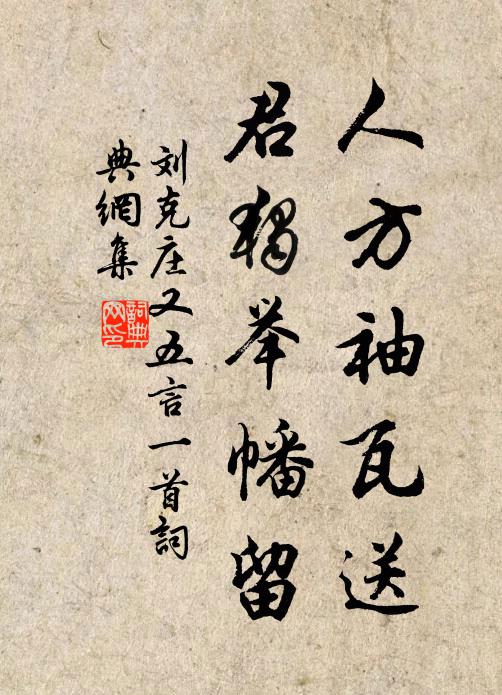 人方袖瓦送
君独举幡留
刘克庄又五言一首詞
典網集
詞典网印